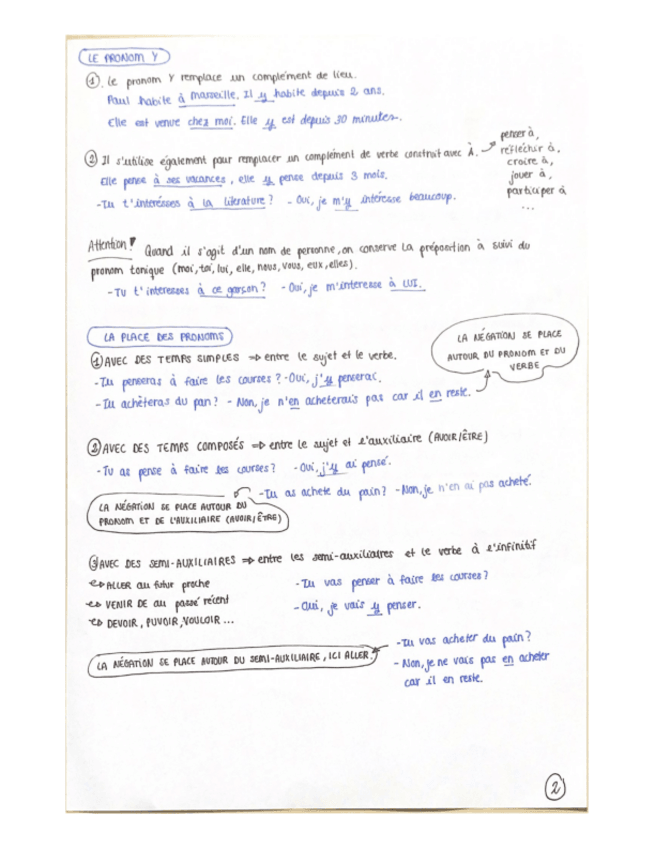 LE PRONOM Y
① Le pronom Y remplace un complément de lieu.
Paul habite à Marseille. Il y habite depuis 2 ans.
Elle est venue chez moi. Elle y est depuis 30 minutes.
② Il s'utilise également pour remplacer un complément de verbe construit avec À.
penser à,
réfléchir à,
croire à,
jouer à,
participer à
...
Elle pense à ses vacances, elle y pense depuis 3 mois.
-Tu t'intéresses à la literature? - Oui, je m'y intéresse beaucoup.
Attention! Quand il s'agit d'un nom de personne, on conserve la préposition à suivi du
pronom tonique (moi, toi, lui, elle, nous, vous, eux, elles).
-Tu t'interesses à ce garçon? - Oui, je m'interesse à LUI.
LA PLACE DES PRONOMS
① AVEC DES TEMPS SIMPLES ⇒ entre le sujet et le verbe.
-Tu penseras à faire les courses? -Oui, j'y penserai.
-Tu achèteras du pan? - Non, je n'en acheterais pas car il en reste.
LA NÉGATION SE PLACE
AUTOUR DU PRONOM ET DU
VERBE
② AVEC DES TEMPS COMPOSÉS ⇒ entre le sujet et l'auxiliaire (AVOIR/ÊTRE)
-Tu as pense à faire les courses? -Oui, j'y ai pensé.
-Tu as acheté du pain? -Non, je n'en ai pas acheté.
LA NÉGATION SE PLACE AUTOUR DU
PRONOM ET DE L'AUXILIAIRE (AVOIR/ÊTRE)
③ AVEC DES SEMI-AUXILIAIRES ⇒ entre les semi-auxiliaires et le verbe à l'infinitif
↪ ALLER au futur proche
↪ VENIR DE au passé récent
↪ DEVOIR, PUVOIR, VOULOIR ...
-Tu vas penser à faire les courses?
-Oui, je vais y penser.
LA NÉGATION SE PLACE AUTOUR DU SEMI-AUXILIAIRE, ICI ALLER.
-Tu vas acheter du pain?
- Non, je ne vais pas en acheter
car il en reste.
2